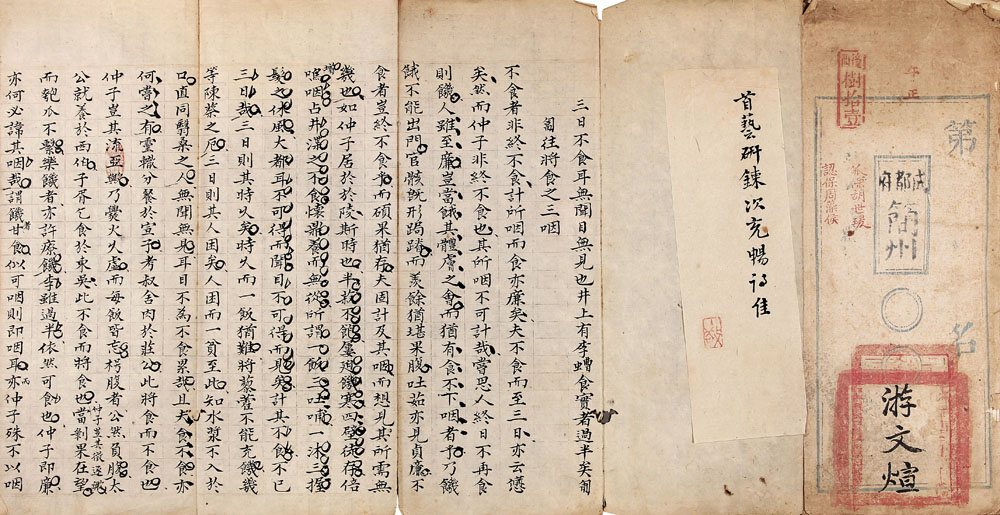 第
名
成都府
簡州
游文煊
樹拾壹
首藝研鍊次充暢詩佳
三日不食耳無聞目無見也井上有李螬食實者過半矣匍
匐往將食之三咽
不食者非終不食計所咽而食亦廉矣夫不食而至三日亦云憊
矣然而仲子非終不食也其所咽不可計哉嘗思人終日不再食
則饑人雖至廉豈當餓其體膚之會而猶有食不下咽者乎乃饑
餓不能出門官骸旣形跼蹐而羨餘猶堪果腹吐茹亦見貞廉不
食者豈終不食乎而碩果猶存夫固計及其咽而想見其所需無
幾也如仲子居於於陵斯時也半菽不飽屢遇饑寒四壁徒存倍
嗟咽占井渫之不食懷鼎養而無從所謂一飯三吐哺一沐三握
髮之休風大都耳不可得而聞目不可得而見矣計其不食不已
三日哉三日則其時久矣時久而一飯猶難將藜藿不能充饑幾
等陳蔡之厄三日則其人困矣人困而一簣至此知水漿不入於
口直同翳桑之人無聞無見耳目不為不食累哉且夫食不食亦
何嘗之有臺檄分餐於宣子考叔舍肉於莊公此將食而不食也
仲子豈其流亞歟乃爨火久虛而每飯皆忘枵腹者公然負腹太
公就養於西伯子胥乞食於東吳此不食而將食也當剝果在望
而匏瓜不繫樂饑者亦許療饑李雖過半依然可食也仲子即廉
亦何必諱其咽哉謂饑者甘食似可咽則即咽耳亦仲子殊不以咽